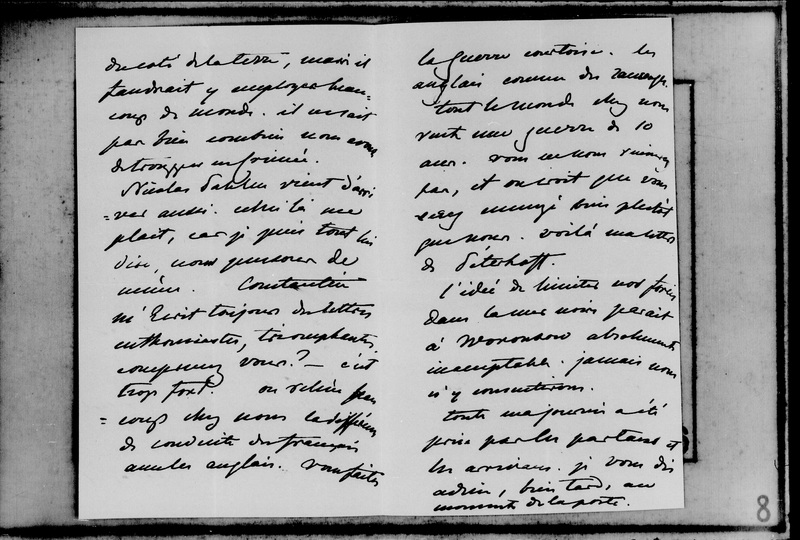 du coté de la terre, mais il
faudrait y employer beau-
coup de monde. il ne sait
pas bien combien nous avons
de troupes en Crimée.
Nicolas Pahlen vient d'arri
=ver aussi. celui là me
plait, car je puis tout lui
dire, nous pensons de
même. Constantin
m'Ecrit toujours des lettres
enthousiastes, triomphantes
comprenez vous? — c'est
trop fort. on relève beau
=coup chez nous la différence
de conduite des français
avec les anglais. vous faites
la guerre courtoise. les
anglais comme des sauvages.
tout le monde chez nous
veut une guerre de 10
ans. vous ne nous ruinerez
pas, et on croit que vous
serez mangé bien plustôt
que nous. voilà ma lettre
de Péterhoff.
l'idée de limiter nos forces
dans la mer noire parait
à Woronzow absolument
inacceptable. jamais nous
n'y consentirons.
toute ma journée a été
prise par les partans et
les arrivans. je vous dis
adieu, bien tard, au
moment de la poste.
8